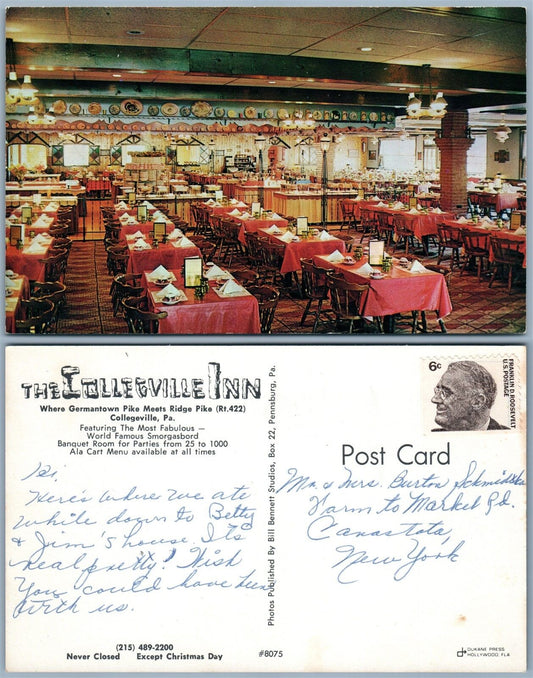 THE COLLEGEVILLE INN
Where Germantown Pike Meets Ridge Pike (Rt.422)
Collegeville, Pa.
Featuring The Most Fabulous —
World Famous Smorgasbord
Banquet Room for Parties from 25 to 1000
Ala Cart Menu available at all times
Hi,
Here's where we ate
while down to Betty
& Jim's house. It's
real pretty! Wish
you could have been
with us.
(215) 489-2200
Never Closed Except Christmas Day
Photos Published by Bill Bennett Studios, Box 22, Pennsburg, Pa.
#8075
6¢
U.S. POSTAGE
FRANKLIN D. ROOSEVELT
Post Card
Mr. & Mrs. Burton
Farm to Market Rd.
Canastota,
New York
DUKANE PRESS
HOLLYWOOD, FLA